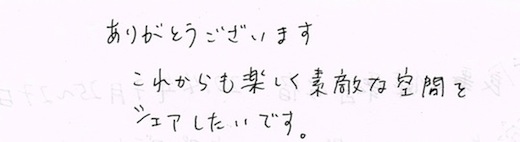 ありがとうございます
これからも楽しく素敵な空間を
シェアしたいです。